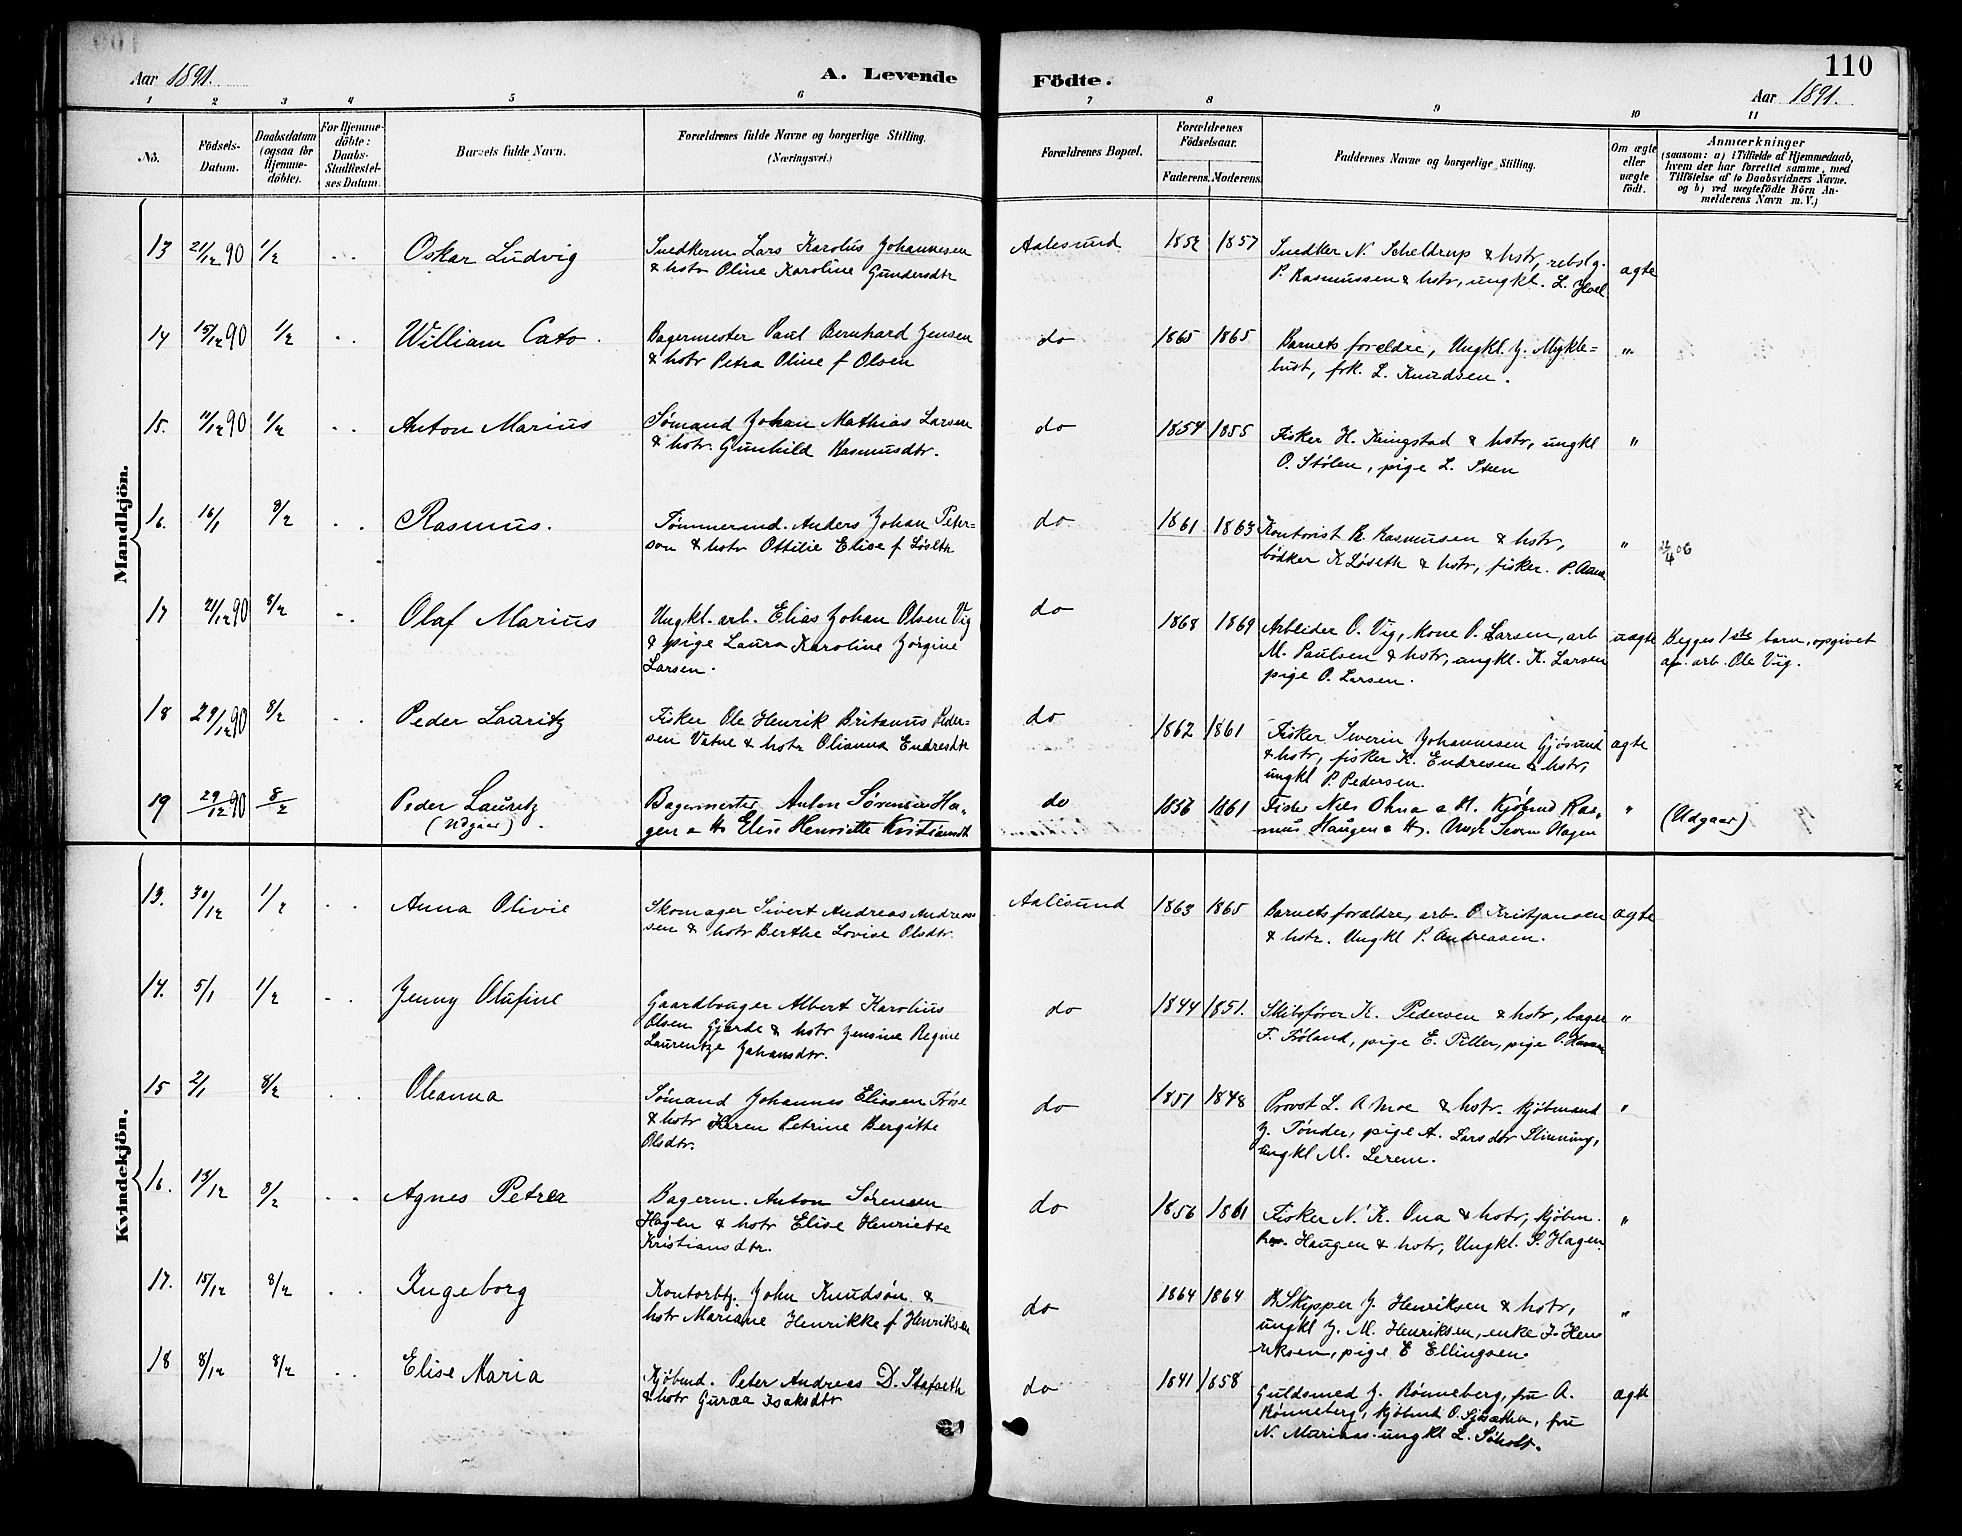 Aar 1891.
A. Levende Födte.
110
Aar 1891.
1 2 3 4 5 6 7 8 9 10 11
No.
Födsels-Datum.
Daabsdatum (ogsaa for Hjemme-döbte).
For Hjemme-döbte: Daabs-Stadfæstel-ses Datum.
Barnets fulde Navn.
Forældrenes fulde Navne og borgerlige Stilling. (Næringsvei.)
Forældrenes Bopæl.
Forældrenes Födselsaar.
Faderens. Moderens.
Faddernes Navne og borgerlige Stilling.
Om ægte eller uægte födt.
Anmærkninger
(saasom: a) i Tilfælde af Hjemmedaab,
hvem der har forrettet samme, med
Tilföielse af to Daabsvidners Navne.
og b) ved uægtefödte Börn An-
melderens Navn m. V.)
Mandkjön.
13 21/12 90 1/2 Oskar Ludvig
Snedkerm Lars Karolus Johannesen
& hstr Oline Karoline Gundersdtr
Aalesund 1852 1857
Snedker N. Scheldrup & hstr, rebslg.
P. Rasmussen & hstr, ungkl. L. Hoel
ægte
14 15/12 90 1/2 William Cato.
Bagermester Paul Bernhard Jensen
& hstr Petra Oline f Olsen
do 1865 1865
Barnets forældre, Ungkl. J. Mykle=
bust, frk. L. Knudsen.
"
15. 11/12 90 1/2 Anton Marius
Sømand Johan Mathias Larsen
& hstr. Gunhild Rasmusdtr.
do 1854 1855
Fisker H. Ringstad & hstr, ungkl
O. Stølen, pige L. Steen
"
16. 16/1 8/2 Rasmus.
Tømmermd. Anders Johan Peter=
sen & hstr Ottilie Elise f Løseth
do 1861 1863
Kontorist R. Rasmusen & hstr,
bødker K Løseth & hstr, fisker. P. Aane
"
17 21/12 90 8/2 Olaf Marius
Ungkl. arb. Elias Johan Olsen Vig
& pige Laura Karoline Jørgine
Larsen.
do 1868 1869
Arbeider O. Vig, kone O. Larsen, arb
M. Paulsen & hstr, ungkl. K. Larsen
pige O. Larsen.
uægte
Begges 1ste barn, opgivet
af arb. Ole Vig.
18 29/12 90 8/2 Peder Lauritz
Fisker Ole Henrik Britanus Peder=
sen Vatne & hstr Olianna Endresdtr
do 1862 1861
Fisker Severin Johannesen Gjøsund
& hstr, fisker K. Endresen & hstr,
ungkl P. Pedersen.
ægte
19 29/12 90 8/2 Peder Lauritz
(Udgaar).
Bagermester Anton Sørensen Ha-
gen & H Elise Henriette Kristiansdt
do 1856 1861
Fisker Nils Ohna & H. Kjøbmd Ras-
mus Haugen & H. Ungk Severin Hagen
"
(Udgaar)
Kvindekjön.
13. 30/12 1/2 Anna Olivie
Skomager Sivert Andreas Andreas
sen & hstr Berthe Lovise Olsdtr.
Aalesund 1863 1865
Barnets forældre, arb. O Kristjansen
& hstr. Ungkl P. Andreasen.
ægte
14. 5/1 1/2 Jenny Olufine
Gaardbruger Albert Karolius
Olsen Gjerde & hstr Jensine Regine
Laurentze Johansdtr.
do 1844 1851.
Skibsfører K. Pedersen & hstr, bager
F. Frøland, pige E. Piller, pige O. Hansen
"
15 2/1 8/2 Oleanna
Sømand Johannes Eliasen
& hstr Karen Petrine Bergitte
Olsdtr.
do 1851 1848
Provst L. A Moe & hstr. kjøbmand
J. Tønder, pige A. Larsdtr Slinning,
ungkl M. Lerem.
"
16. 13/12 8/2 Agnes Petrea
Bagerm. Anton Sørensen
Hagen & hstr Elise Henriette
Kristiansdtr.
do 1856 1861
Fisker N. K. Ona & hstr, kjøbm.
Haugen & hstr, Ungkl. S. Hagen.
"
17. 15/12 8/2 Ingeborg
Kontorbtj. John Knudsøn &
hstr Mariane Henrikke f Henriksen
do 1864 1864
Skipper J. Henriksen & hstr,
ungkl J. M. Henriksen, enke J. Hen
riksen, pige E Ellingsen.
"
18 8/12 8/2 Elise Maria
Kjøbmd. Peter Andreas D. Stafseth
& hstr Guræa Isaksdtr
do 1841 1858
Guldsmed J. Rønneberg, fru A.
Rønneberg, kjøbmd O., fru
N. ungkl L. Søholt.
ægte